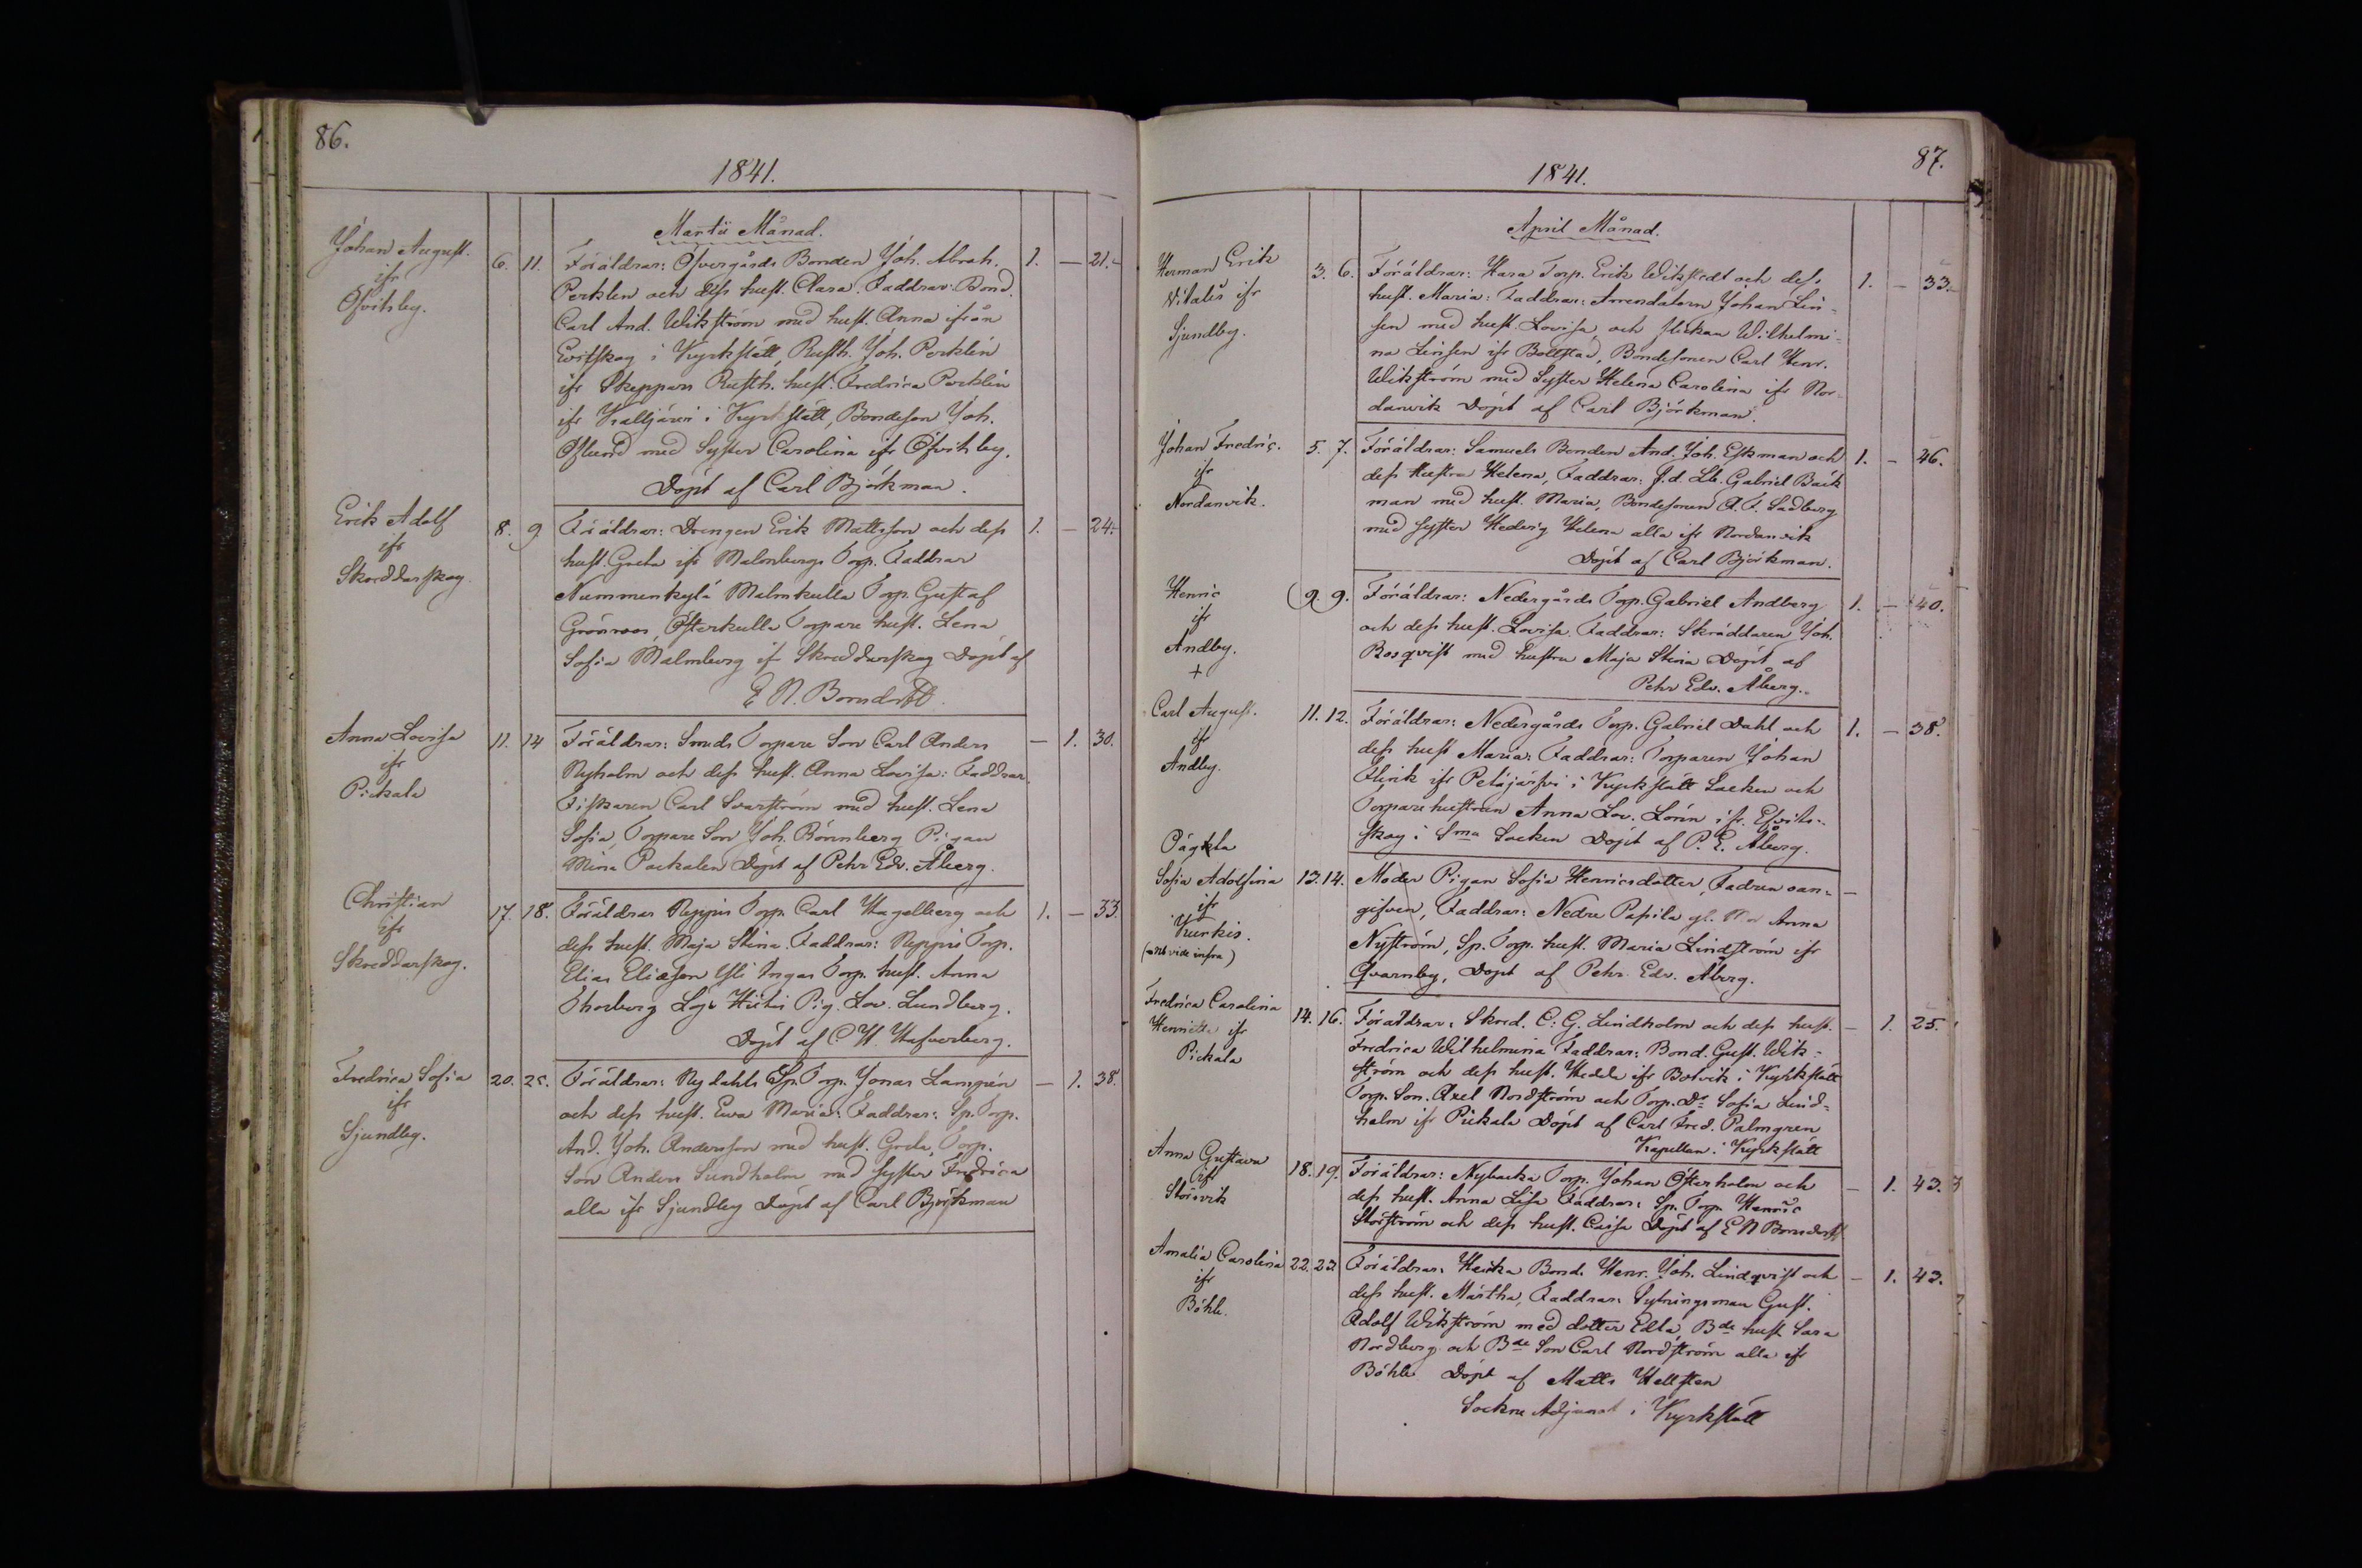 86.
1841.
Martii Månad.
Johan August.
ifr
Öfvitsby.
6. 11. Föräldrar: Öfvergårds Bonden Joh. Abrah. 1. — 21.
Perklen och dess hust. Clara. Faddrar: Bond.
Carl And. Wikström med hust. Anna ifrån
Evitskog i Kyrkslätt, Rusth. Joh. Perklén
ifr Skeppars Rusth. hust. Fredrica Perklén
ifr i Kyrkslätt, Bondeson Joh.
Öslund med Syster Carolina ifr Öfvitsby.
Döpt af Carl Björkman.
Erik Adolf
ifr
Skreddarskog.
8. 9 Föräldrar: Drengen Erik Mattsson och dess 1. — 24.
hust. Greta ifr Malmbergs Torp. Faddrar
Nummenkylä Malmkulla Torp. Gustaf
Grönroos, Österkulla Torpare hust. Lena
Sofia Malmberg ifr Skreddarskog Döpt af
E. N. Bornsdorff.
Anna Lovisa
ifr
Pickala
11. 14 Föräldrar: Smeds Torpare Son Carl Anders — 1. 30.
Nyholm och dess hust. Anna Lovisa: Faddrar
Fiskaren Carl Svarström med hust. Lena
Sofia, Torpare Son Joh. Rönnberg Pigan
Mina Packalen Döpt af Pehr Edv. Åberg.
Christian
ifr
Skreddarskog.
17. 18. Föräldrar Reppis Torp. Carl Hagelberg och 1. — 33.
dess hust. Maja Stina. Faddrar: Reppis Torp.
Elias Eliasson Yli Ingas Torp. hust. Anna
Thorberg Lojo Pig. Lov. Lundberg.
Döpt af C. H. Hafverberg.
Fredrica Sofia
ifr
Sjundby.
20. 25. Föräldrar: Nydahls Sp. Torp. Jonas Lampén — 1. 38.
och dess hust. Ewa Maria: Faddrar: Sp. Torp.
And. Joh. Andersson med hust. Greta, Torp.
Son Anders Sundholm med Syster Fredrica
alla ifr Sjundby Döpt af Carl Björkman
87.
1841.
April Månad.
Herman Erik
Vitalis ifr
Sjundby.
3. 6. Föräldrar: Hara Torp. Erik Wikstedt och dess 1. — 33.
hust. Maria: Faddrar: Arrendatorn Johan Lin-
sen med hust. Lovisa, och flickan Wilhelmi-
na Linsen ifr Bollstad, Bondesonen Carl Henr.
Wikström med Syster Helena Carolina ifr Nor-
danvik Döpt af Carl Björkman.
Johan Fredric.
ifr
Nordanvik.
5. 7. Föräldrar: Samuels Bonden And. Joh. Eskman och 1. — 46.
dess Hustru Helena, Faddrar: f.d. Gabriel Bäck
man med hust. Maria, Bondesonen A. F. Sadberg
med syster Hedvig Helena alla ifr Nordanvik
Döpt af Carl Björkman.
Henric
ifr
Andby.
+
9. 9. Föräldrar: Nedergårds Torp. Gabriel Andberg 1. — 40.
och dess hust. Lovisa. Faddrar: Skräddaren Joh.
Rosqvist med hustru Maja Stina Döpt af
Pehr Edv. Åberg.
Carl August.
ifr
Andby.
11. 12. Föräldrar: Nedergårds Torp. Gabriel Dahl och 1. — 38.
dess hust Maria: Faddrar: Torparen Johan
Flink ifr Petäjärfvi i Kyrkslätt Socken och
Torpare hustrun Anna Lov. Lorén ifr. Efvits-
skog i Sma Socken Döpt af P. E. Åberg.
Oägta
Sofia Adolfina
ifr
Kurkis.
(obs vide infra)
13. 14. Moder Pigan Sofia Henricsdotter, Fadren oan- —
gifven, Faddrar: Nedre Papila Anna
Nyström, Sp. Torp. hust. Maria Lindström ifr
Qvarnby, Döpt af Pehr Edv. Åberg.
Fredrica Carolina
Henrietta ifr
Pickala
14. 16. Föräldrar: Skred. C: G. Lindholm och dess hust. — 1. 25.
Fredrica Wilhelmina Faddrar: Bond. Gust. Wik-
ström och dess hust. Hedda ifr Botvik i Kyrkslätt
Torp. Son. Axel Nordström och Torp. Dr Sofia Lind-
holm ifr Pickala Döpt af Carl Fred. Palmgren
Kapellan i Kyrkslätt
Anna Gustava
ifr
Störsvik
18. 19. Föräldrar: Nybacka Torp. Johan Österholm och — 1. 43.
dess hust. Anna Lisa Faddrar: Sp. Torp. Henric
Storström och dess hust. Caisa Döpt af E N Bornsdorff
Amalia Carolina
ifr
Böhle.
22. 23. Föräldrar: Heikka Bond. Henr. Joh. Lindqvist och — 1. 43.
dess hust. Märtha, Faddrar: Sytningsman Gust.
Adolf Wikström med dotter Edla, Bde hust Sara
Nordberg och Bde Son Carl Nordström alla ifr
Böhle Döpt af Matts Hellsten
Sockne Adjunct i Kyrkslätt